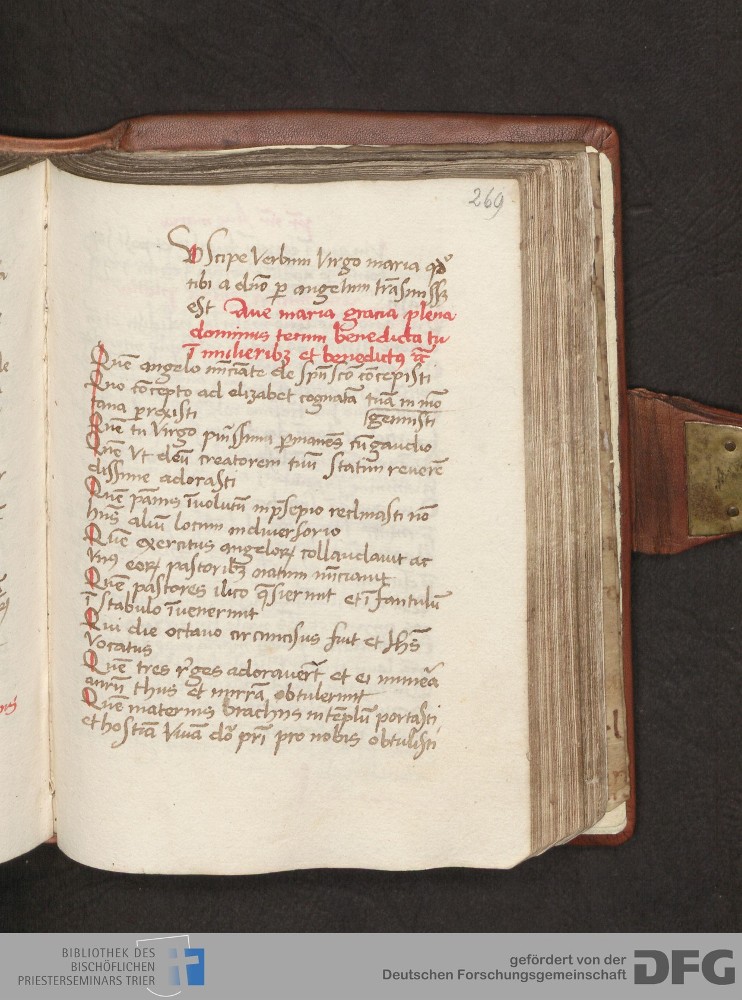 269
Suscipe verbum virgo maria qď
tibi a dn̄o ꝑ angelum trāsmissū
est Aue maria gracia plena
dominus tecum benedicta tu
ī mulieribꝫ et benedictꝰ
Quē angelo nūciāte de spū sc̄o cōcepisti
Quo cōcepto ad elizabet cognatā tuā in mō
tana ꝑrexisti genuisti
Quē tu virgo pijssima ꝑmanēs cū gaudio
Quē vt deū creatorem tuū statim reuerē
dissime adorasti
Quē pānis īuolutū in p̄sepio reclinasti nō
hn̄s aliū locum in diuersorio
Quē exercitus angeloꝝ collaudauit ac
vnꝰ eoꝝ pastoribꝫ natum nūciauit
Quē pastores ilico q̄sierunt et īfantulū
ī stabulo īuenerunt
Qui die octauo circumcisus fuit et Jhūs
vocatus
Quē tres reges adorauerūt et ei munera
aurū thus et mirrā obtulerunt
Quē maternis brachijs in tēplū portasti
et hostiā viuā dō pr̄i pro nobis obtulisti
BIBLIOTHEK DES
BISCHÖFLICHEN
PRIESTERSEMINARS TRIER
gefördert von der
Deutschen Forschungsgemeinschaft DFG